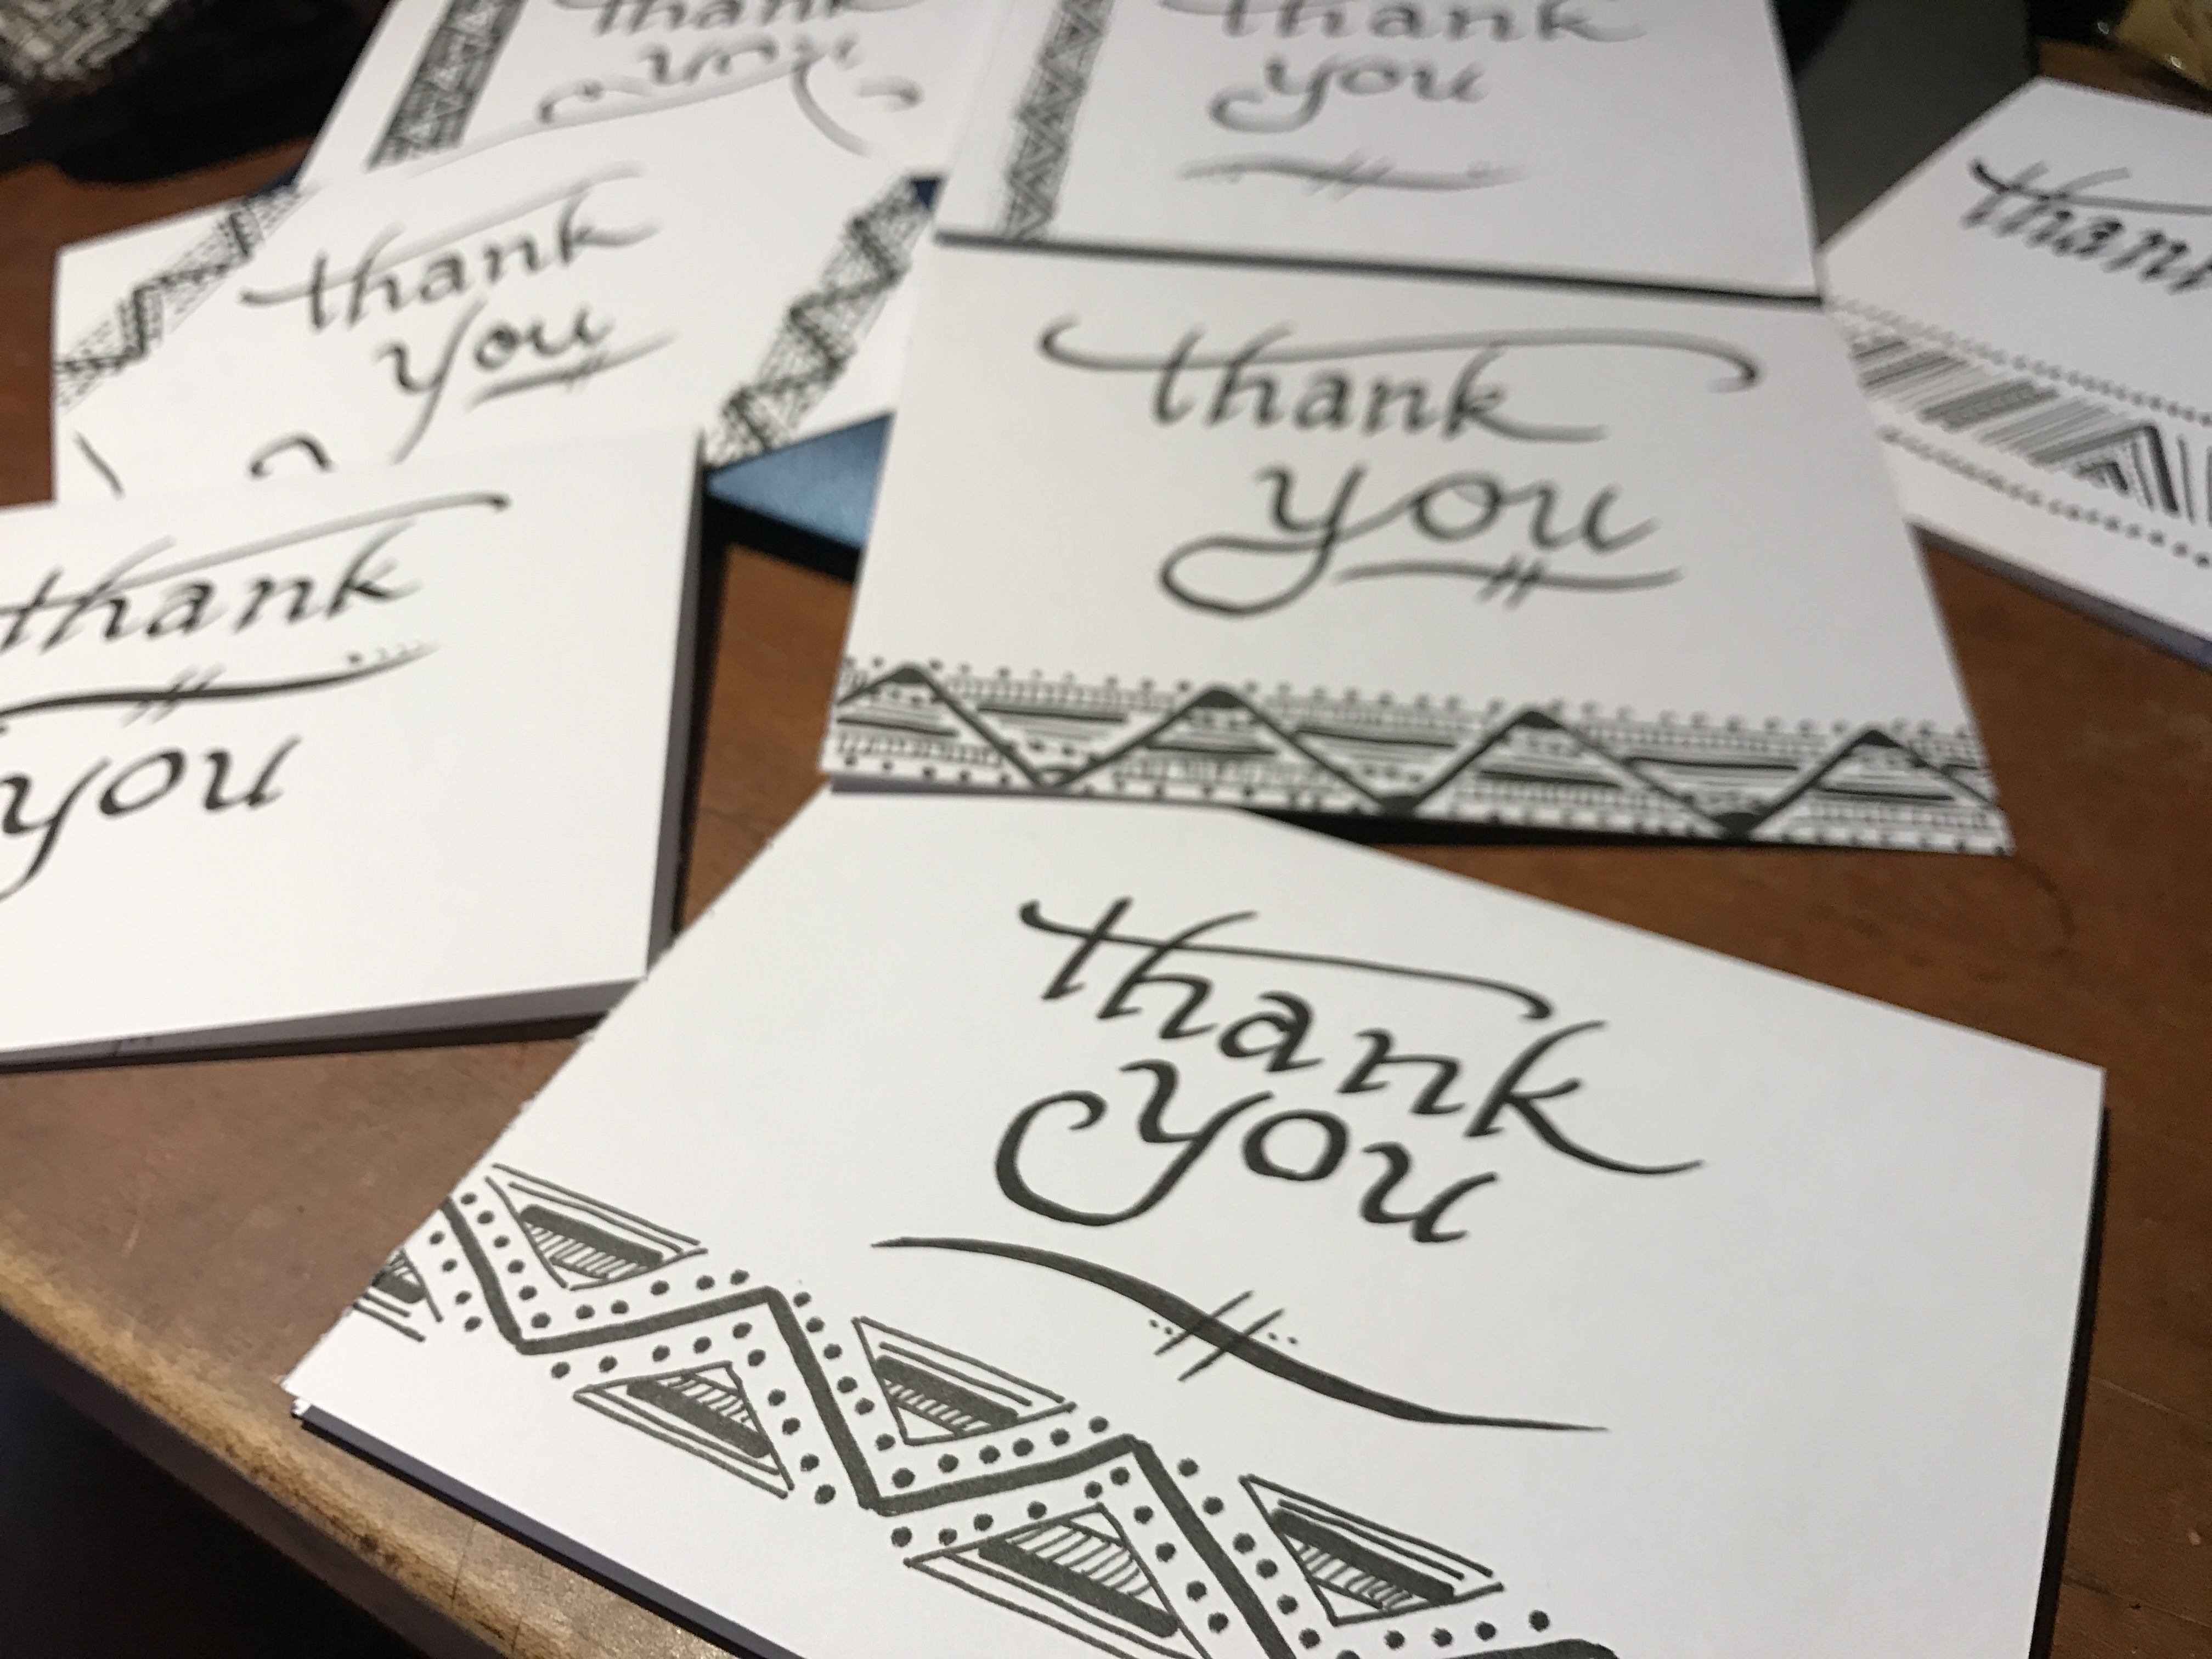 thank
you
thank
you
thank
you
thank
thank
you
thank
you
thank
you